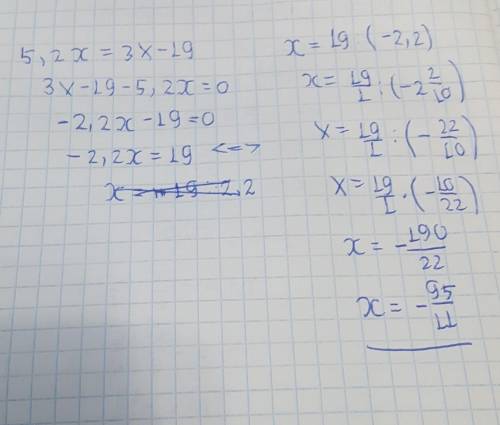 5,2x = 3x-19
3x-19-5,2x=0
-2,2x-19=0
-2,2x=19 <=>
x = 19 (-2,2)
x = 19/1 : (-2 2/10)
x = 19/1 : (-22/10)
x = 19/1 · (-10/22)
x = -190/22
x = -95/11